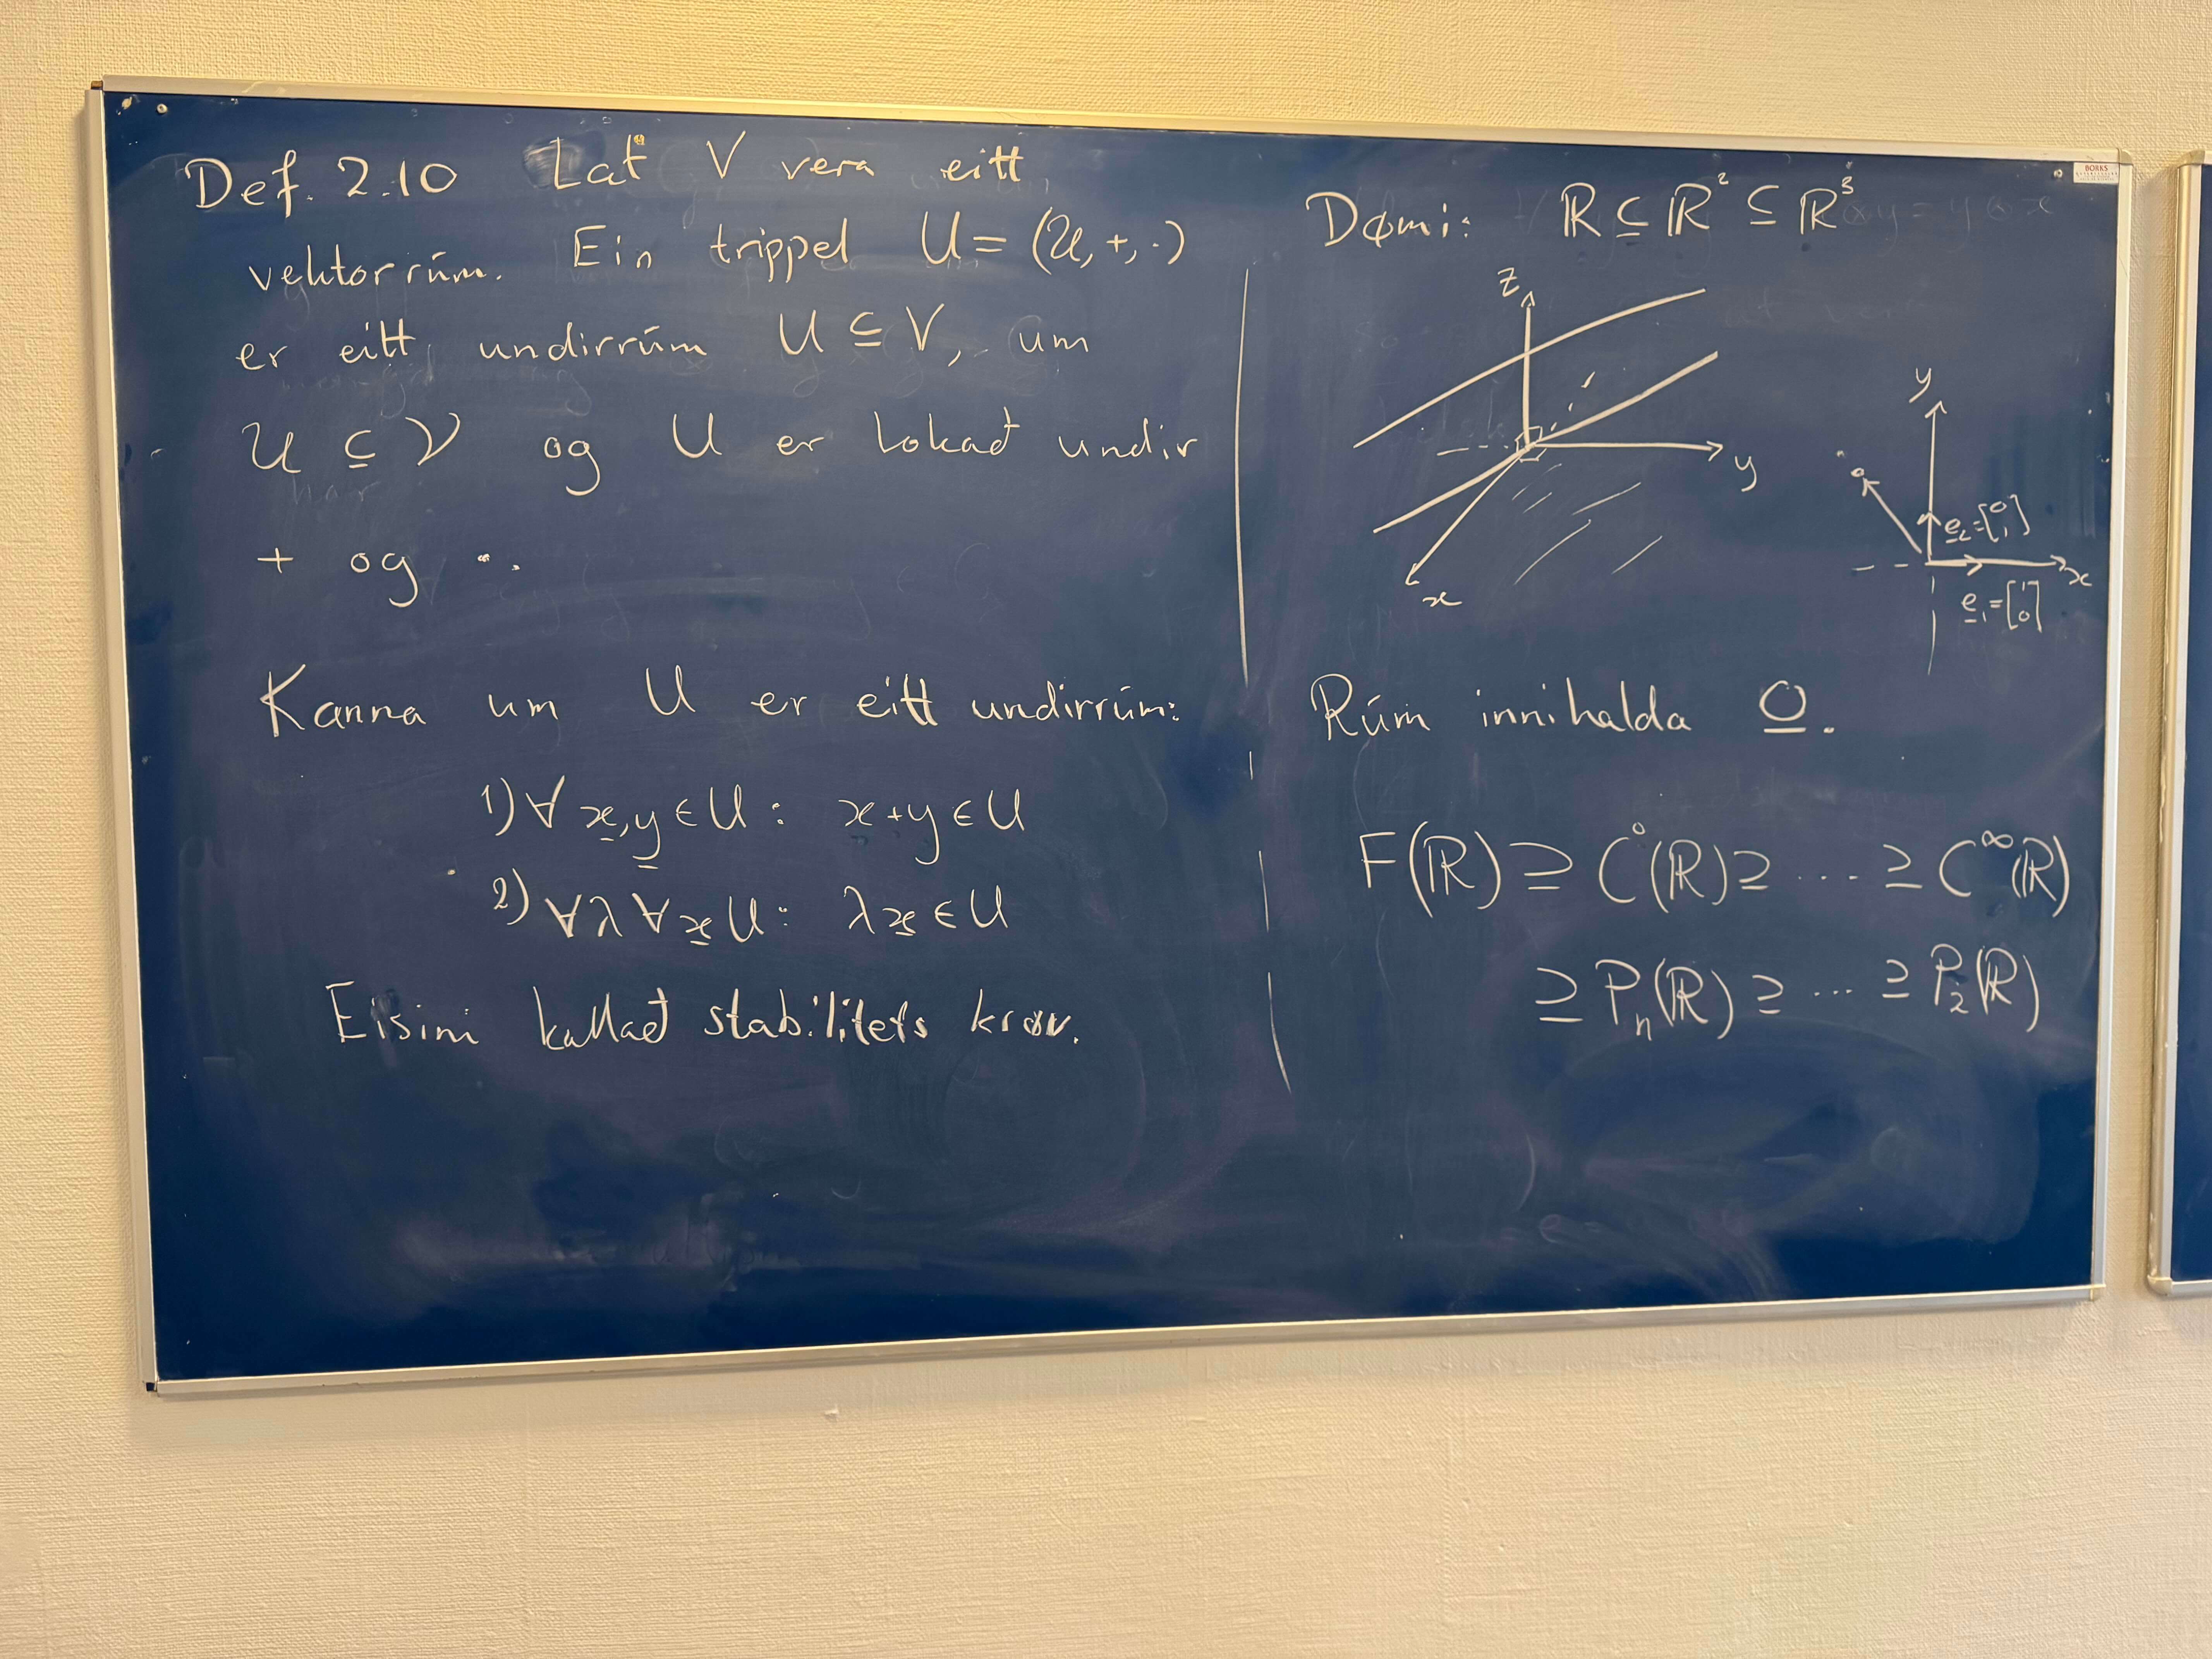 Def. 2.10 Lat V vera eitt
vektorrúm. Ein trippel U = (𝒰, +, ·)
er eitt undirrúm U ⊆ V, um
𝒰 ⊆ 𝒱 og U er lokað undir
+ og ·.
Kanna um U er eitt undirrúm:
1) ∀ x̲, y̲ ∈ U : x + y ∈ U
2) ∀ λ ∀ x̲ U : λ x̲ ∈ U
Eisini kallað stabilitets krøv.
Dømi: ℝ ⊆ ℝ² ⊆ ℝ³
z
y
x
y
e̲₂ = [0 1]
x
e̲₁ = [1 0]
Rúm innihalda 0̲.
F(ℝ) ⊇ C⁰(ℝ) ⊇ ... ⊇ C^∞(ℝ)
⊇ Pₙ(ℝ) ⊇ ... ⊇ P₂(ℝ)